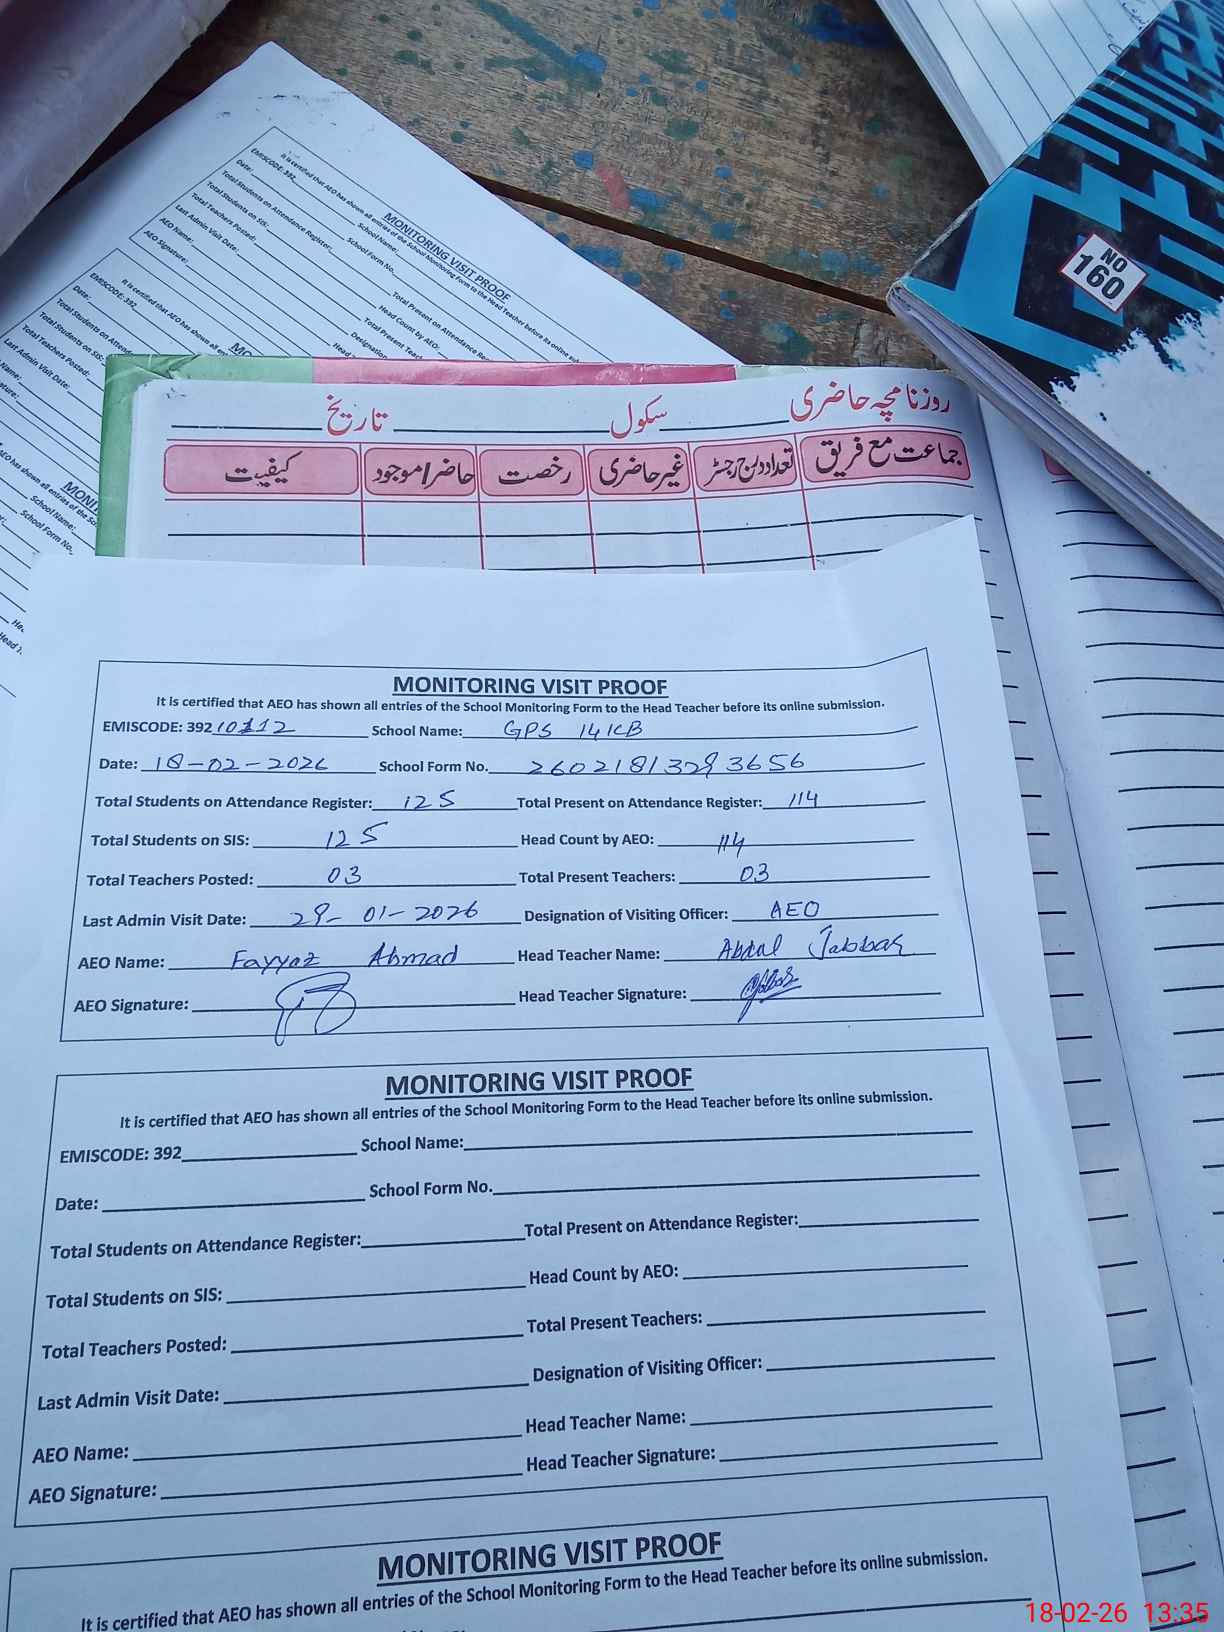 MONITORING VISIT PROOF
It is certified that AEO has shown all entries of the School Monitoring Form to the Head Teacher before its online
EMISCODE: 392 School Name:
Date: School Form No.
Total Students on Attendance Register: Total Present on Attendance
Total Students on SIS: Head Count by AEO:
Total Teachers Posted: Total Present
Last Admin Visit Date: Designation
AEO Name: Head
AEO Signature:
EMISCODE: 392
Date:
Total Students on
Total Students on SIS:
Total Teachers Posted:
Last Admin Visit Date:
NO
160
روزنامچہ حاضری سکول تاریخ
جماعت مع فریق تعداد درج رجسٹر غیر حاضری رخصت حاضر/موجود کیفیت
MONITORING VISIT PROOF
It is certified that AEO has shown all entries of the School Monitoring Form to the Head Teacher before its online submission.
EMISCODE: 392 10112 School Name: GPS 14 KB
Date: 18-02-2026 School Form No. 26021813293656
Total Students on Attendance Register: 125 Total Present on Attendance Register: 114
Total Students on SIS: 125 Head Count by AEO: 114
Total Teachers Posted: 03 Total Present Teachers: 03
Last Admin Visit Date: 29-01-2026 Designation of Visiting Officer: AEO
AEO Name: Fayyaz Ahmad Head Teacher Name: Abdul Jabbar
AEO Signature: Head Teacher Signature:
MONITORING VISIT PROOF
It is certified that AEO has shown all entries of the School Monitoring Form to the Head Teacher before its online submission.
EMISCODE: 392 School Name:
Date: School Form No.
Total Students on Attendance Register: Total Present on Attendance Register:
Total Students on SIS: Head Count by AEO:
Total Teachers Posted: Total Present Teachers:
Last Admin Visit Date: Designation of Visiting Officer:
AEO Name: Head Teacher Name:
AEO Signature: Head Teacher Signature:
MONITORING VISIT PROOF
It is certified that AEO has shown all entries of the School Monitoring Form to the Head Teacher before its online submission.
18-02-26 13:35